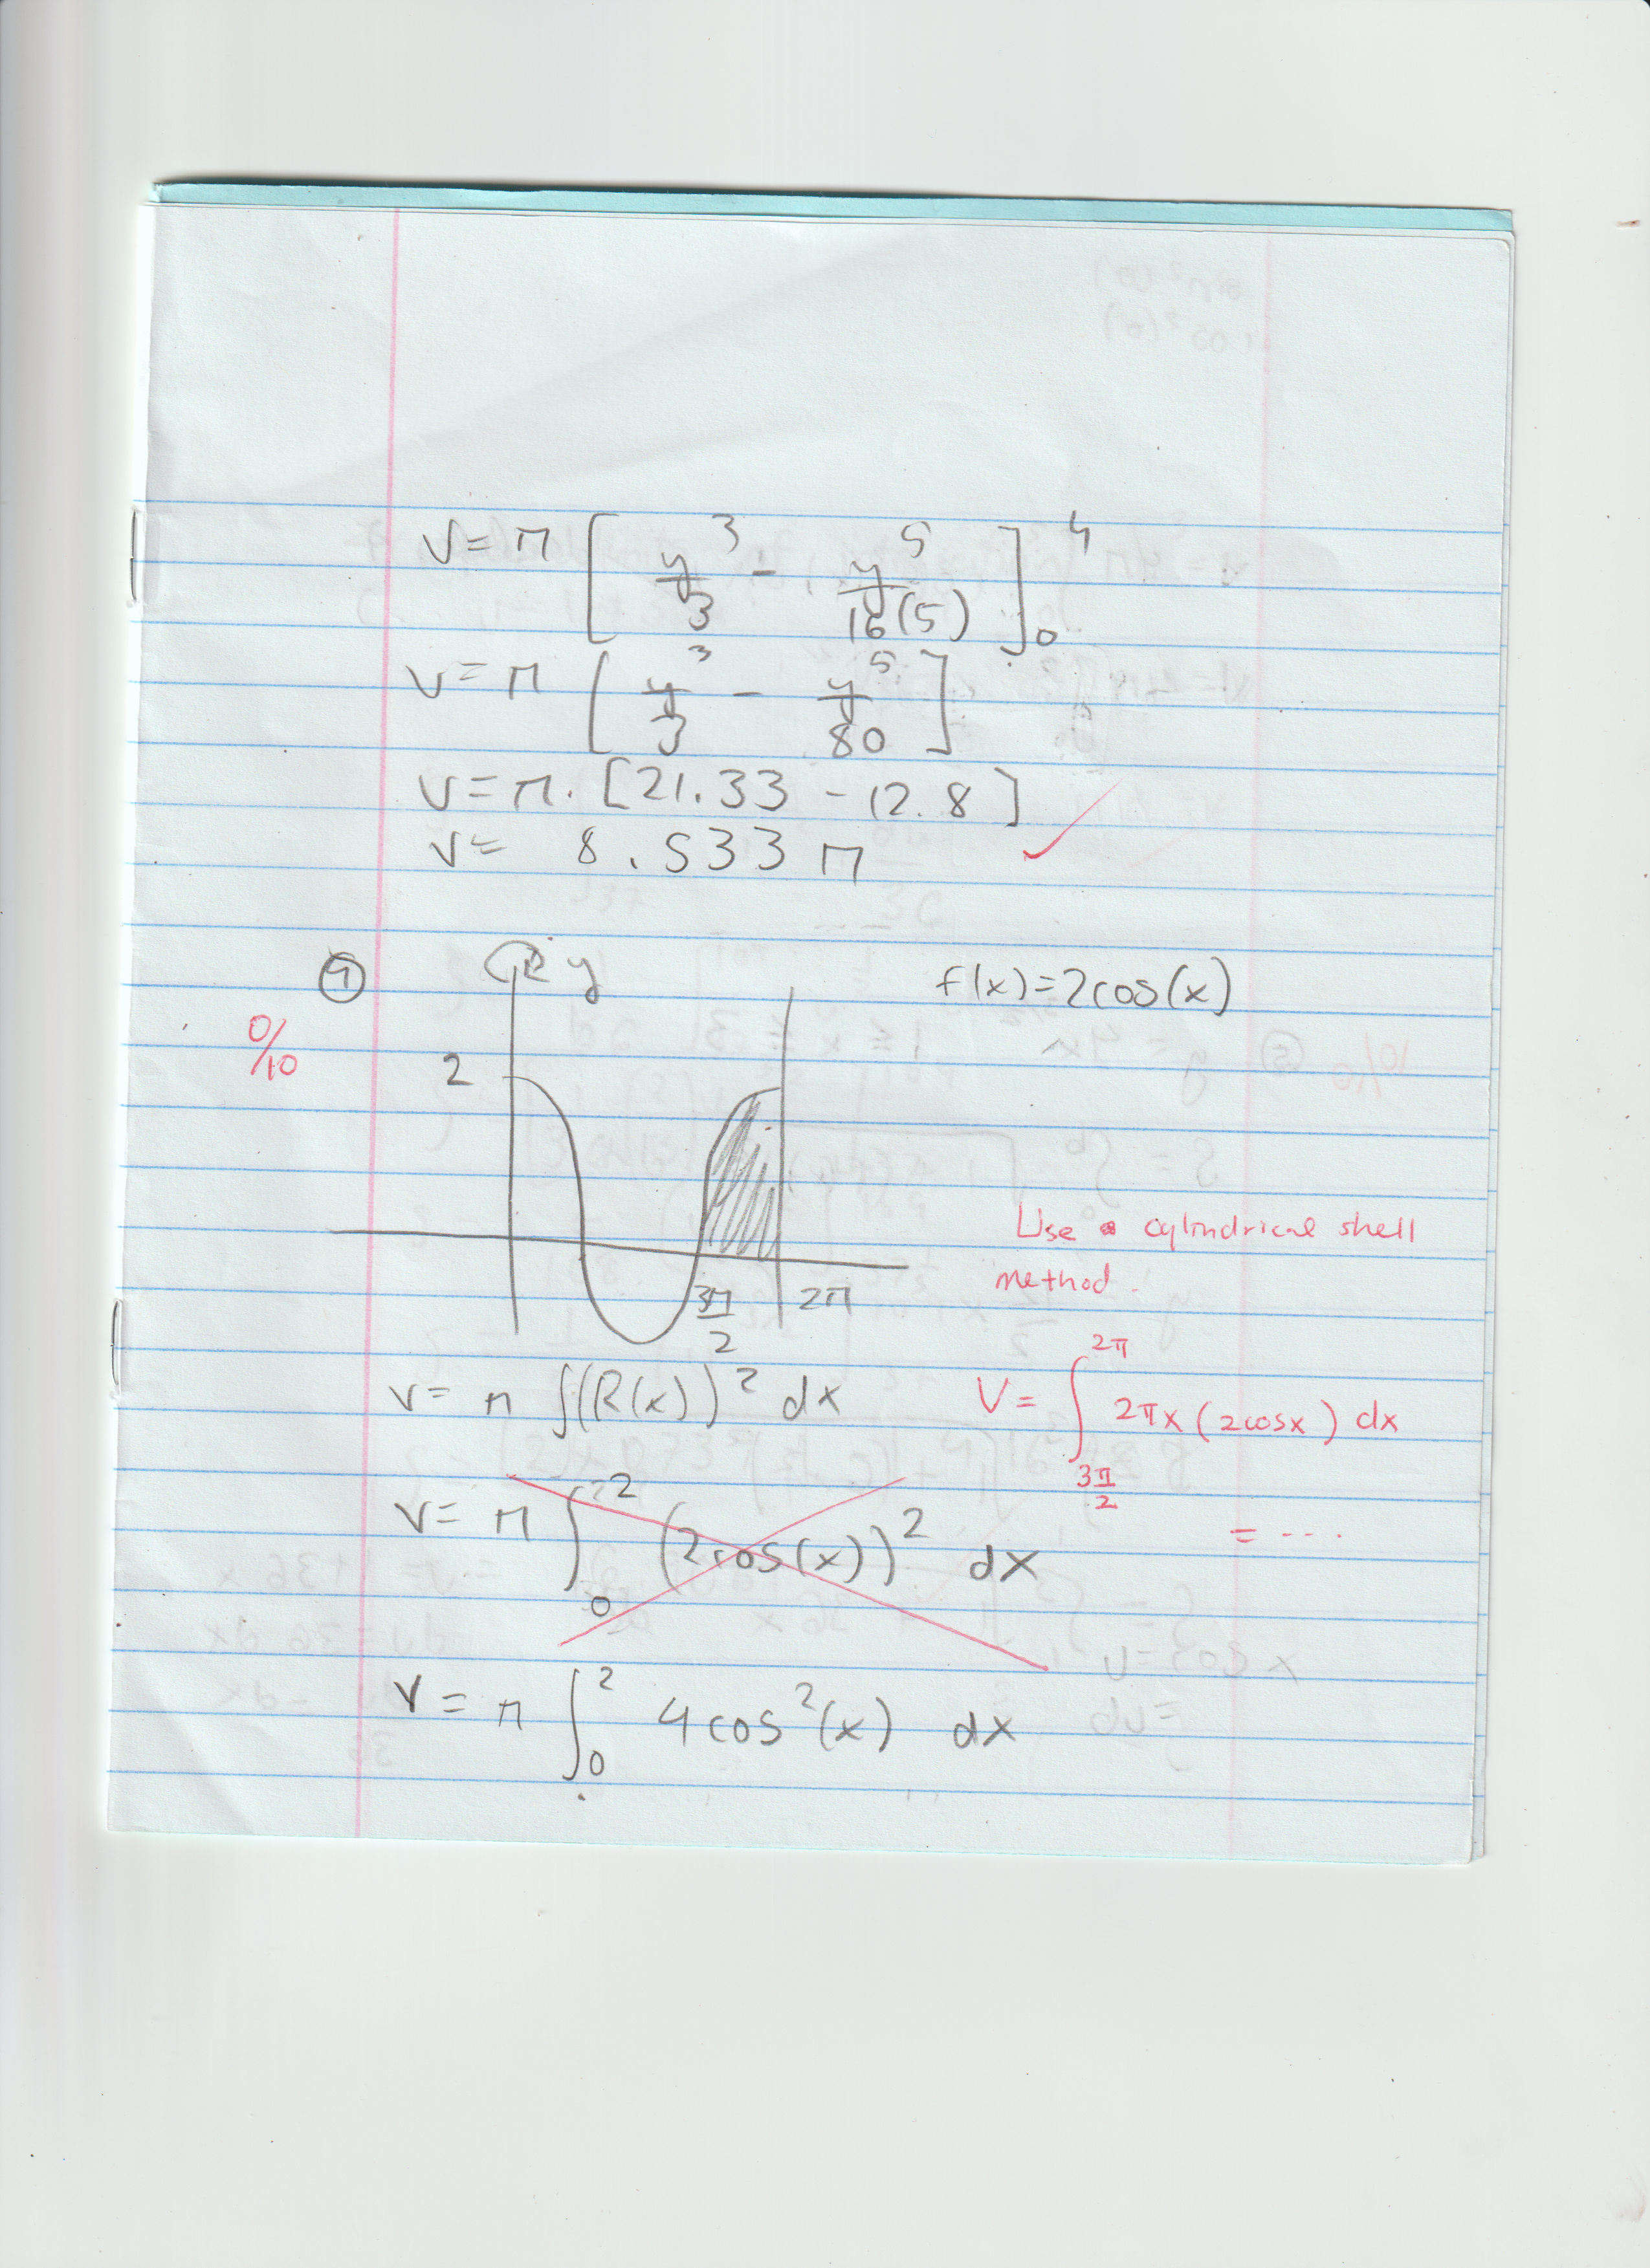 V = π [ y³/3 - y⁵/16(5) ]₀⁴
V = π [ y³/3 - y⁵/80 ]
V = π · [21.33 - 12.8]
V = 8.533 π
④ y f(x) = 2cos(x)
0/10
2
Use a cylindrical shell
method.
3π/2 2π
V = π ∫(R(x))² dx V = ∫_{3π/2}^{2π} 2πx (2cosx) dx
V = π ∫₀² (2cos(x))² dx = ...
V = π ∫₀² 4cos²(x) dx